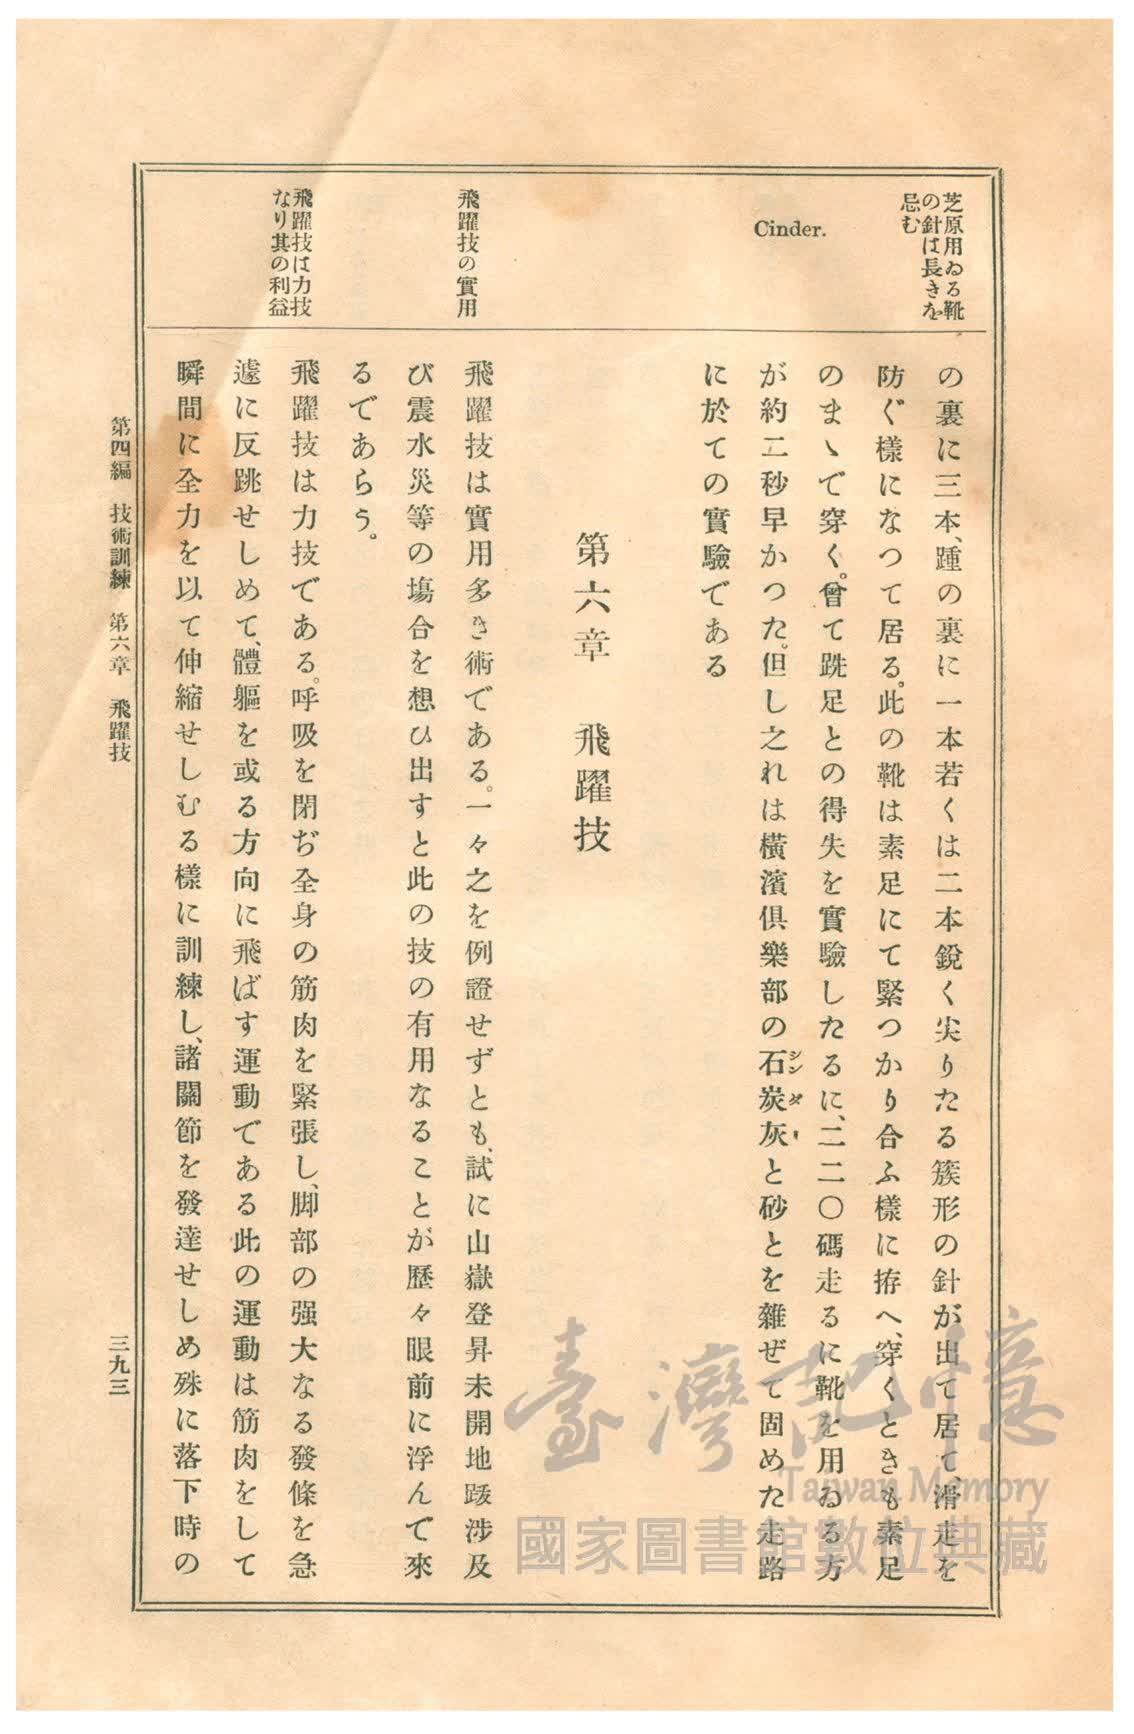 芝原用ゐる靴
の針は長きを
忌む
Cinder.
飛躍技の實用
飛躍技は力技
なり其の利益
の裏に三本、踵の裏に一本若くは二本鋭く尖りたる簇形の針が出て居て、滑走を
防ぐ樣になつて居る。此の靴は素足にて緊つかり合ふ樣に拵へ、穿くときも素足
のまゝで穿く。曾て跣足との得失を實驗したるに、二二〇碼走るに靴を用ゐる方
が約二秒早かつた。但し之れは橫濱俱樂部の石炭灰と砂とを雜ぜて固めた走路
シンダー
に於ての實驗である
第六章 飛躍技
飛躍技は實用多き術である。一々之を例證せずとも、試に山嶽登昇未開地跋涉及
び震水災等の塲合を想ひ出すと此の技の有用なることが歷々眼前に浮んで來
るであらう。
飛躍技は力技である。呼吸を閉ぢ全身の筋肉を緊張し、脚部の强大なる發條を急
遽に反跳せしめて、體軀を或る方向に飛ばす運動である此の運動は筋肉をして
瞬間に全力を以て伸縮せしむる樣に訓練し、諸關節を發達せしめ殊に落下時の
第四編 技術訓練 第六章 飛躍技
三九三
臺灣記憶
Taiwan Memory
國家圖書館數位典藏